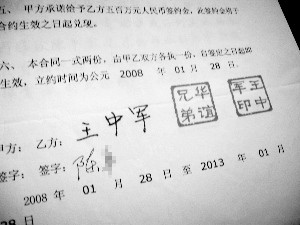 五、甲方承诺给予乙方五百万元人民币签约金，此签约金将于
合约生效之日起兑现。
六、本合同一式两份，由甲乙双方各执一份，自签定之日起即
生效，立约时间为公元 2008 年 01 月 28 日。
华谊兄弟
王中军印
甲方： 乙方： 王中军
签字： 签字： 陈
2008 年 01 月 28 日 至 2013 年 01 月
28 日